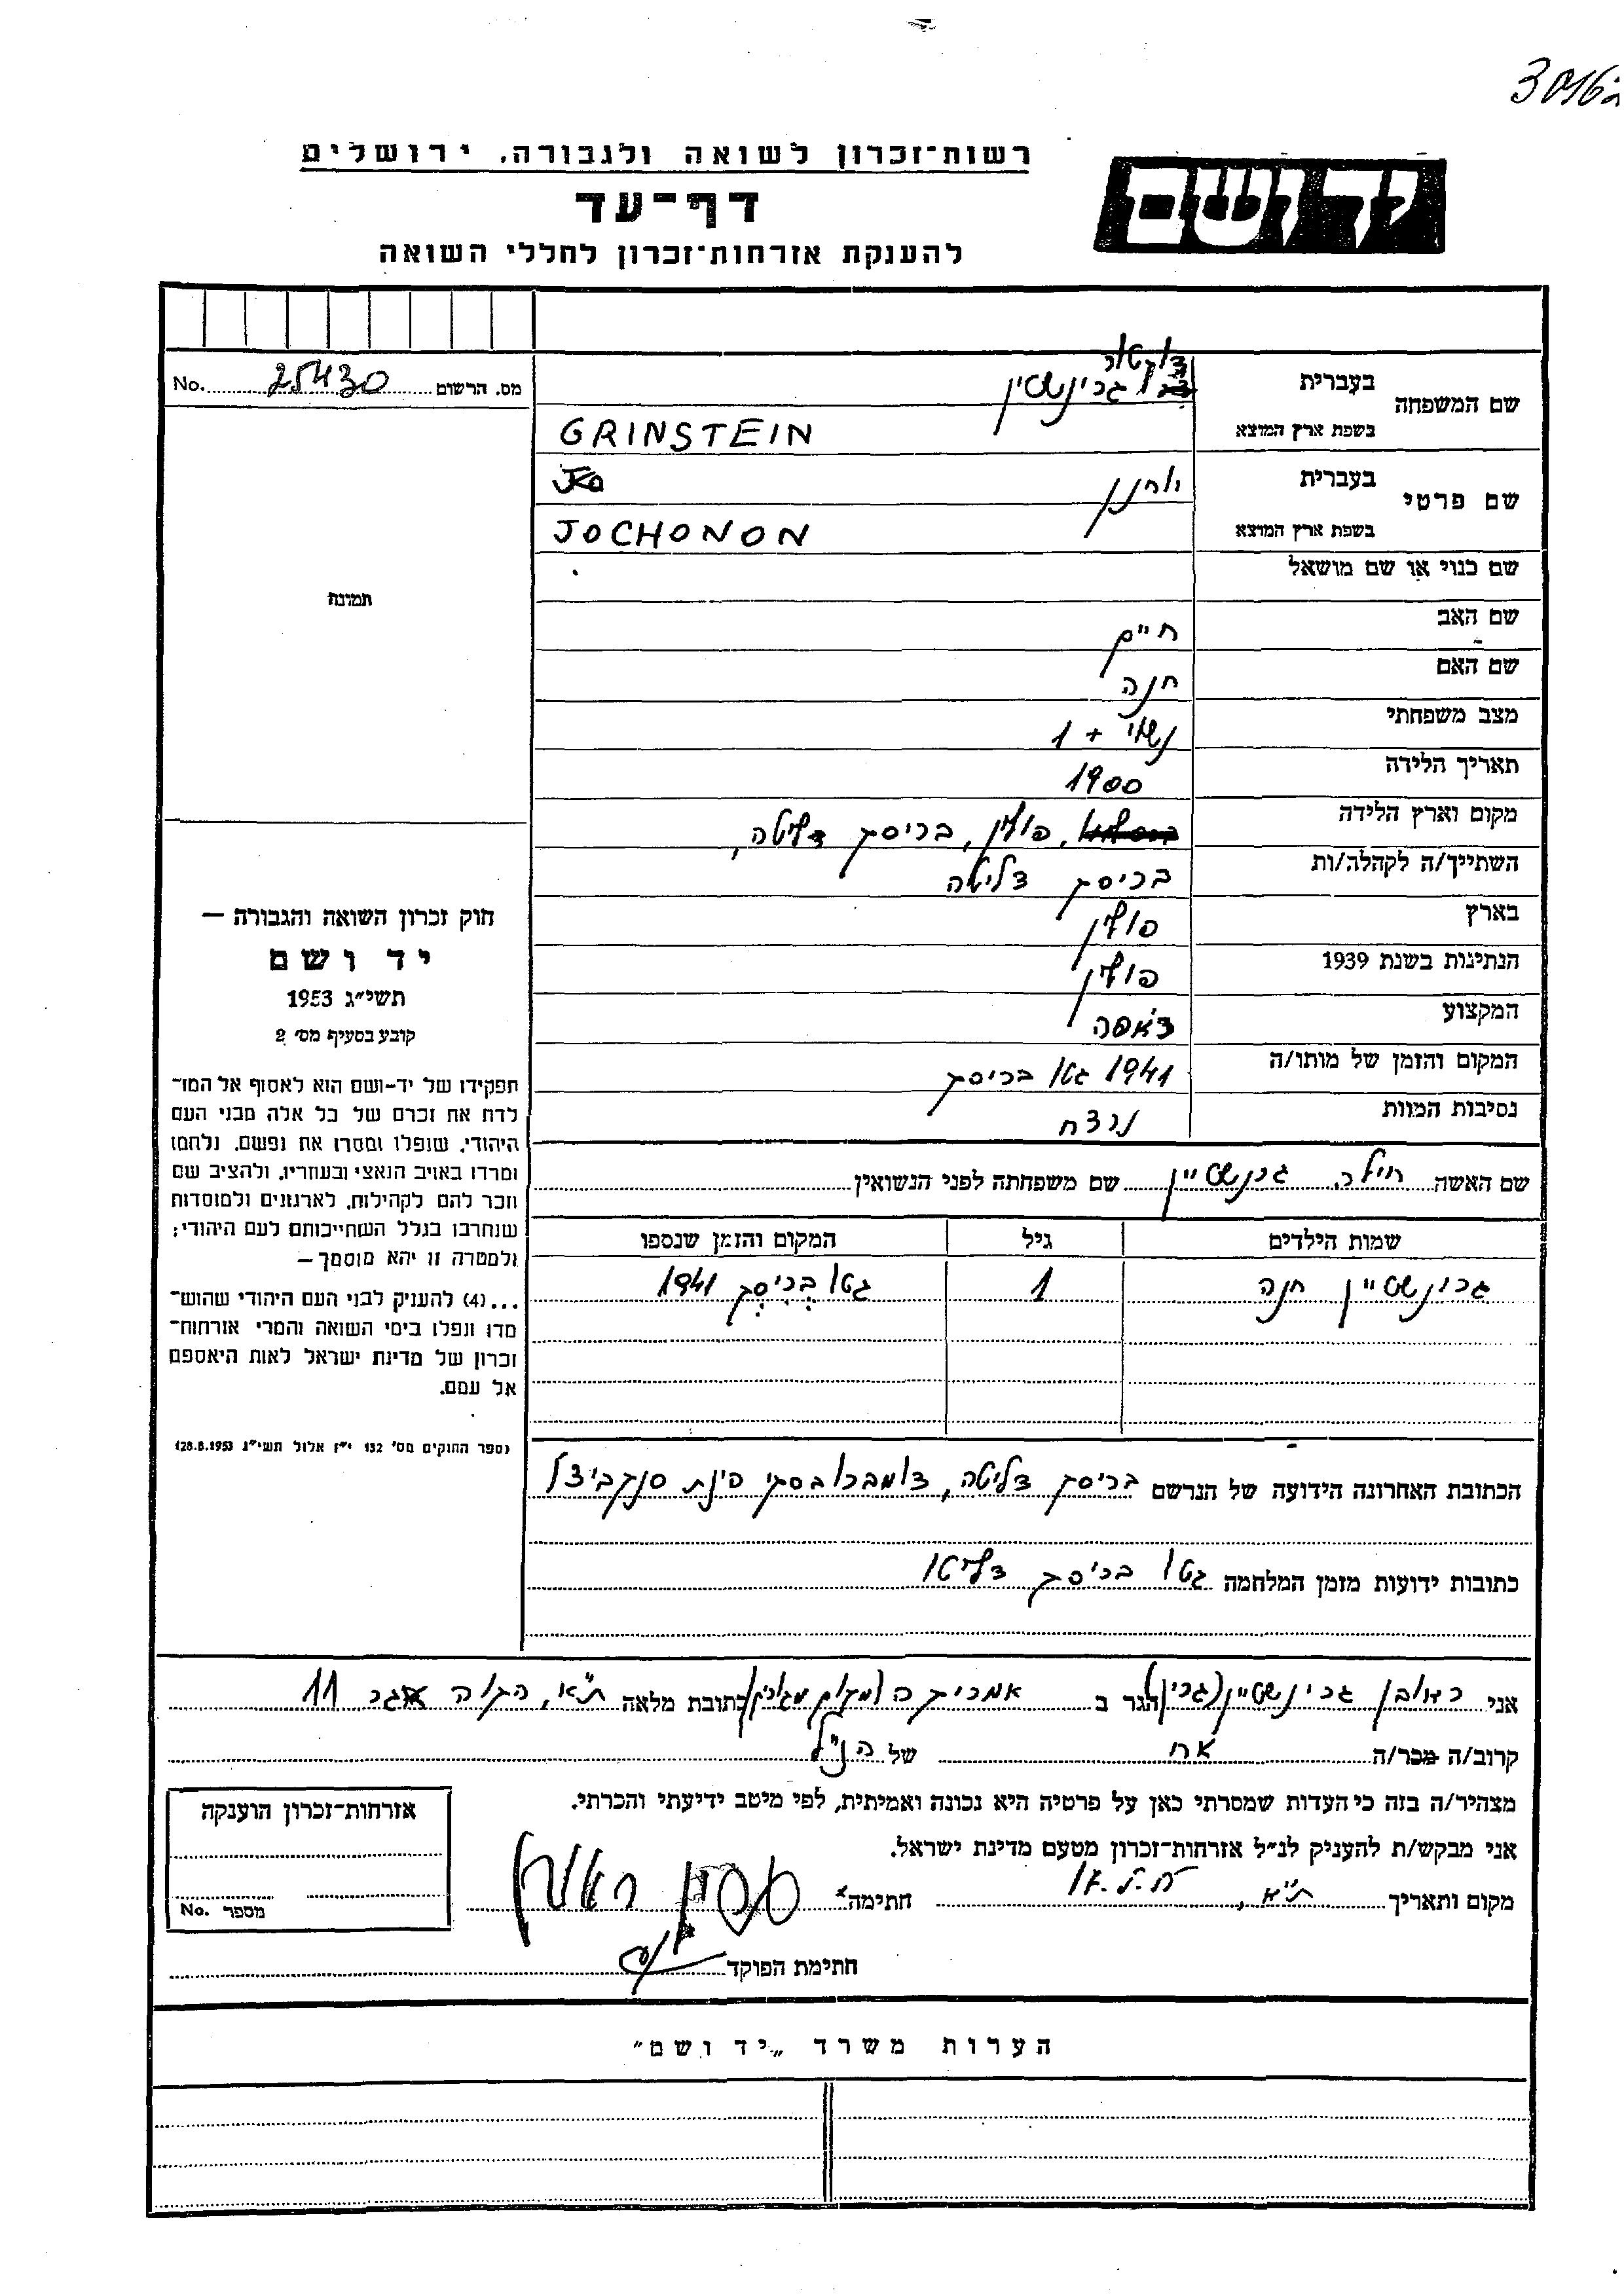 רשות־זכרון לשואה ולגבורה, ירושלים
יד ושם
דף־עד
להענקת אזרחות־זכרון לחללי השואה
מס. הרשום 25430 No.
שם המשפחה
בעברית
דוקטור
גרינשטין
בשפת ארץ המוצא GRINSTEIN
שם פרטי
בעברית יוחנן
בשפת ארץ המוצא JOCHONON
תמונה
שם כנוי או שם מושאל
שם האב חיים
שם האם חנה
מצב משפחתי נשוי + 1
תאריך הלידה 1900
מקום וארץ הלידה פולין, בריסק דליטה,
השתייך/ה לקהלה/ות בריסק דליטה
בארץ פולין
הנתינות בשנת 1939 פולין
המקצוע רופא
המקום והזמן של מותו/ה 1941 גטו בריסק
נסיבות המוות נרצח
חוק זכרון השואה והגבורה —
יד ושם
תשי״ג 1953
קובע בסעיף מס׳ 2
תפקידו של יד-ושם הוא לאסוף אל המו־
לדת את זכרם של כל אלה מבני העם
היהודי, שנפלו ומסרו את נפשם, נלחמו
ומרדו באויב הנאצי ובעוזריו, ולהציב שם
וזכר להם לקהילות, לארגונים ולמוסדות
שנחרבו בגלל השתייכותם לעם היהודי;
ולמטרה זו יהא מוסמך —
...(4) להעניק לבני העם היהודי שהוש־
מדו ונפלו בימי השואה והמרי אזרחות־
זכרון של מדינת ישראל לאות היאספם
אל עמם.
(ספר החוקים מס׳ 132 י״ז אלול תשי״ג 28.8.1953)
שם האשה גרנשטיין שם משפחתה לפני הנשואין
שמות הילדים גיל המקום והזמן שנספו
גרינשטיין חנה 1 גטו בריסק 1941
הכתובת האחרונה הידועה של הנרשם בריסק דליטה, דומברובסקי פינת סנקביצ'ו
כתובות ידועות מזמן המלחמה גטו בריסק דליטו
אני ראובן גרינשטיין (גרין) הגר ב אמריקה כתובת מלאה ת״א, 11
קרוב/ה מכר/ה אח של הנ״ל
מצהיר/ה בזה כי העדות שמסרתי כאן על פרטיה היא נכונה ואמיתית, לפי מיטב ידיעתי והכרתי.
אני מבקש/ת להעניק לנ״ל אזרחות־זכרון מטעם מדינת ישראל.
מקום ותאריך ת״א, חתימה
חתימת הפוקד
אזרחות־זכרון הוענקה
מספר No.
הערות משרד „יד ושם״